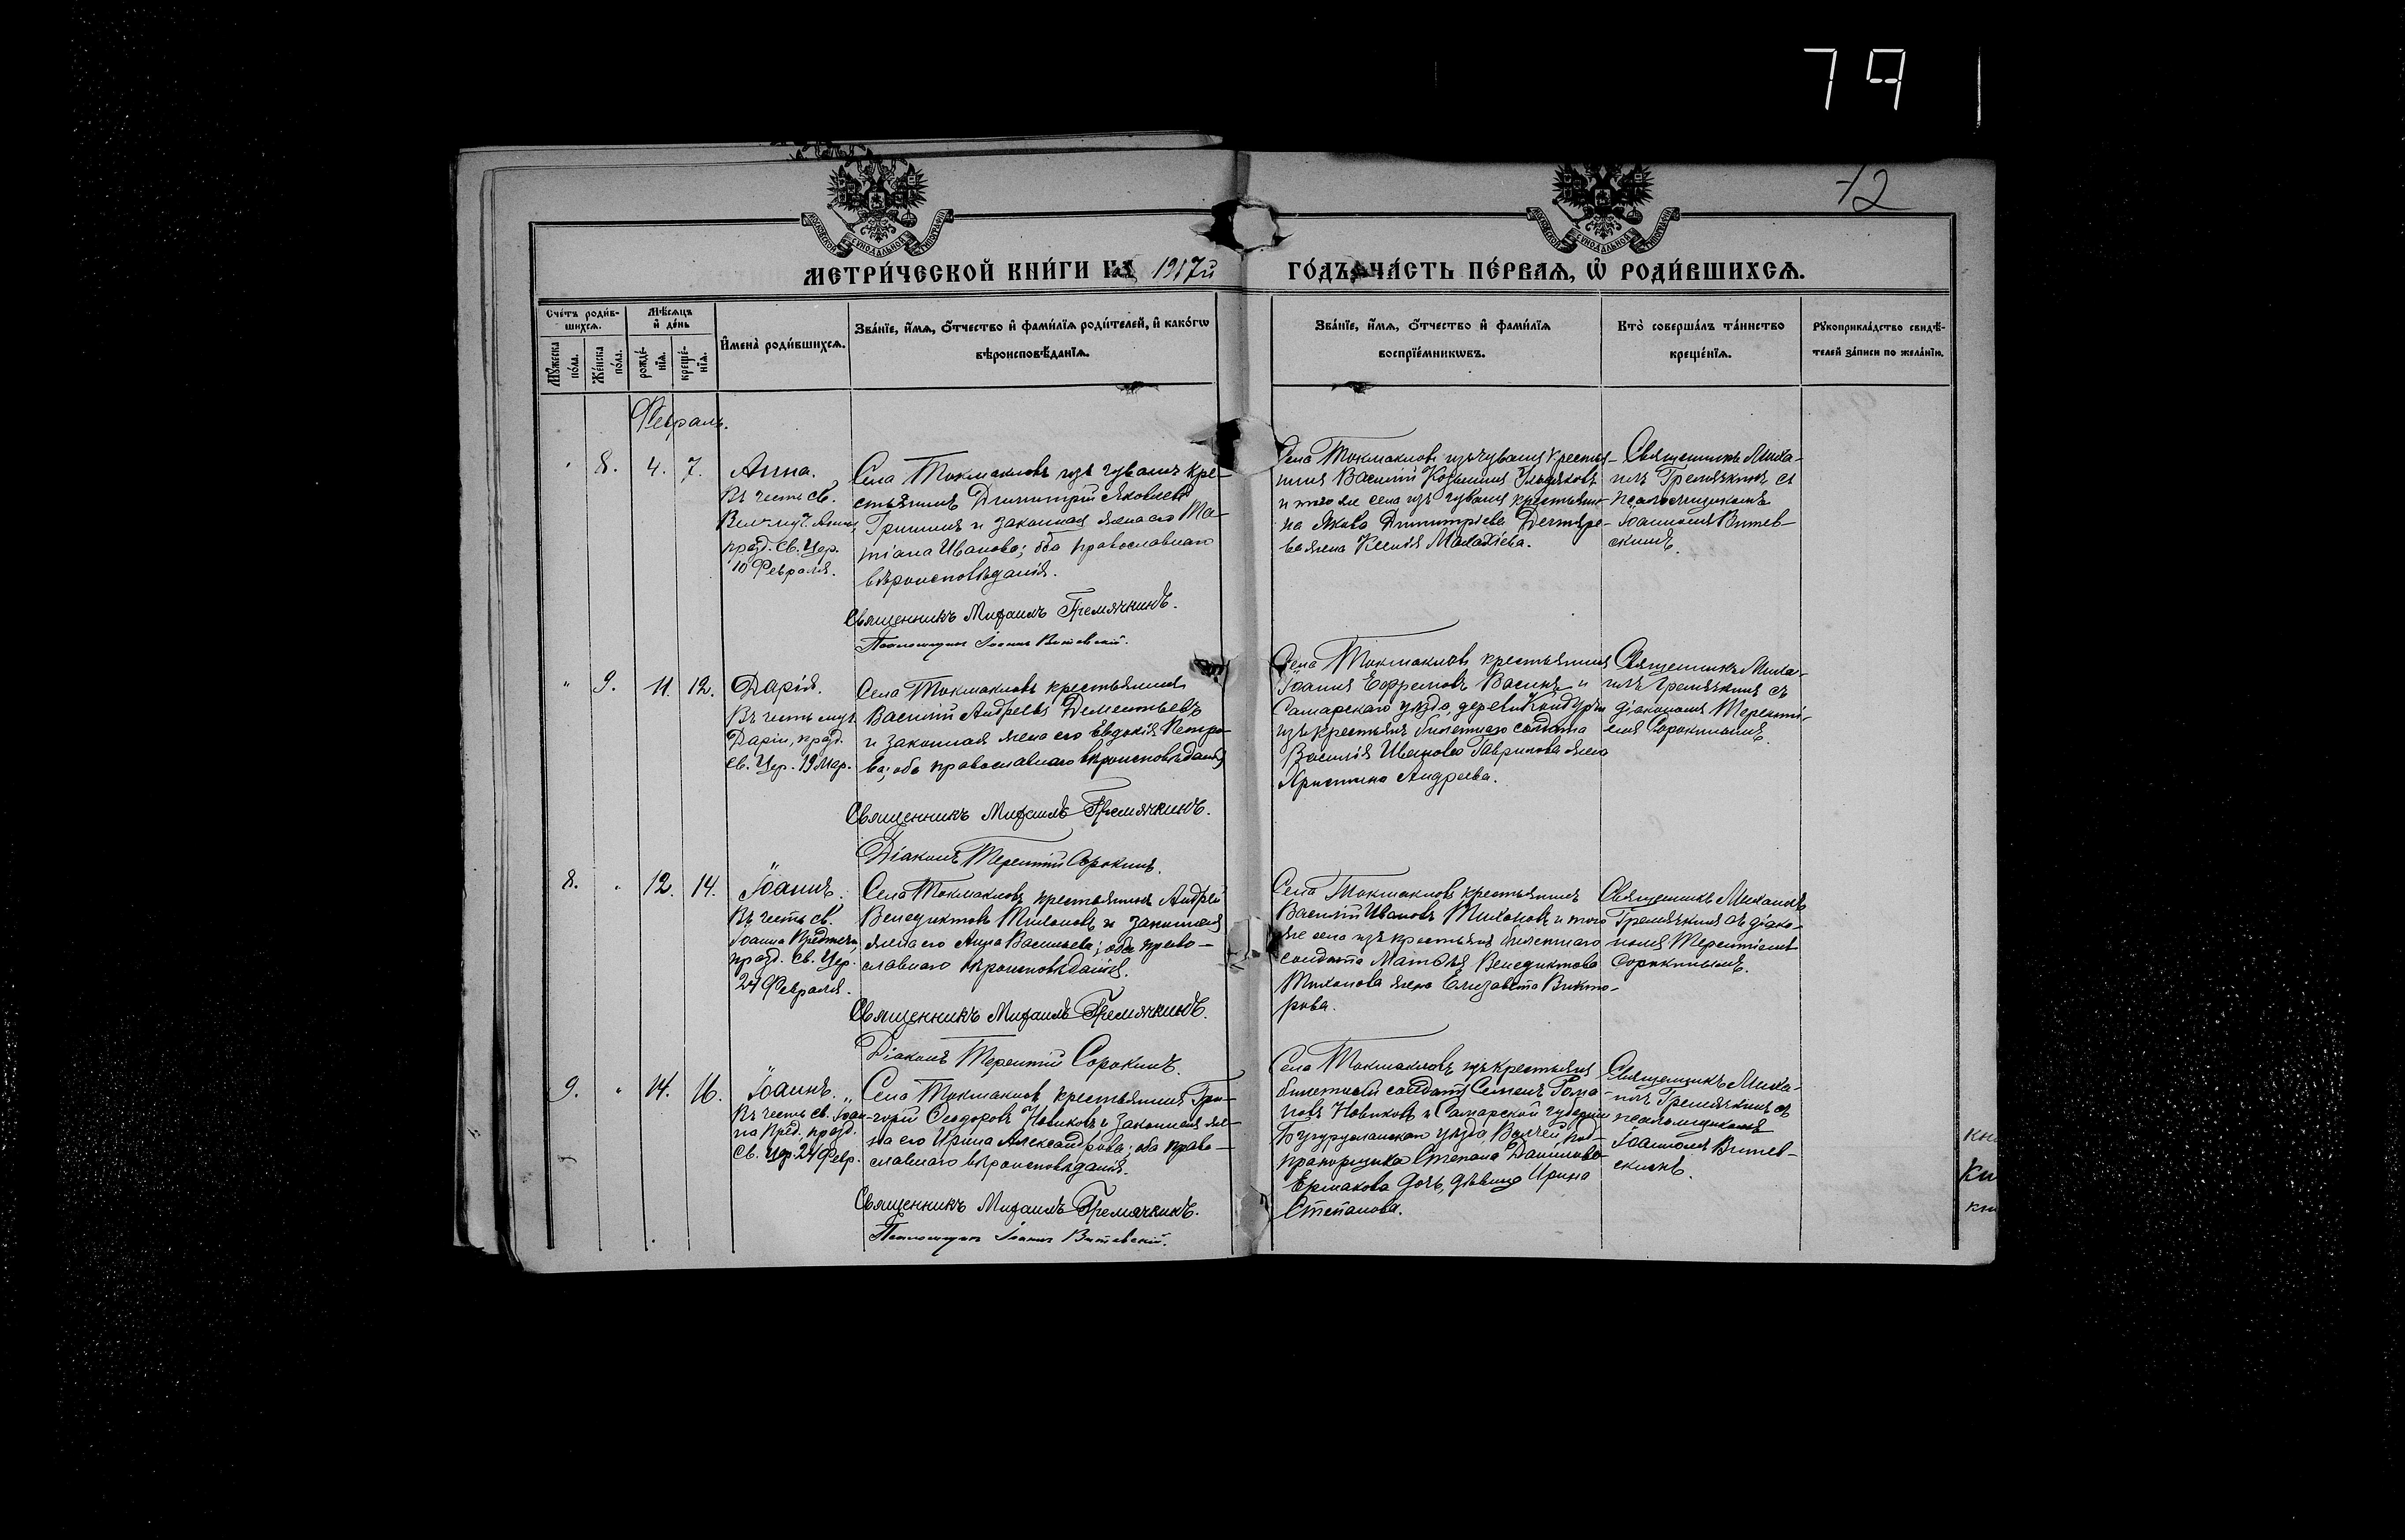 79
72
МЕТРИ́ЧЕСКОЙ КНИ́ГИ НА 1917й ГО́ДЪ, ЧА́СТЬ ПЕ́РВАЯ, Ѡ҆ РОДИ́ВШИХСЯ.
Сче́тъ роди́в-
шихся.
Мѣ́сяцъ
и҆ де́нь
Мꙋ́жеска
по́ла.
Же́нска
по́ла.
рожде́-
нїѧ.
креще́-
нїѧ.
И҆мена̀ роди́вшихсѧ.
Зва́нїе, и҆́мѧ, ѻ҆́тчество и҆ фами́лїѧ роди́телей, и҆ како́гѡ
вѣроисповѣ́данїѧ.
Зва́нїе, и҆́мѧ, ѻ҆́тчество и҆ фами́лїѧ
воспрїе́мникѡвъ.
Кто̀ соверша́лъ та́инство
креще́нїѧ.
Рꙋкоприкла́дство свидѣ́-
телей за́писи по жела́нїю.
Февраль.
8. 4. 7.
Анна.
Въ честь св.
Велмуч. Анны,
празд. Св. Цер.
10 Февраля.
Села Токмаковъ изъ чувашъ кре-
стьянинъ Димитрій Яковлевъ
Гришинъ и законная жена его Та-
тіана Иванова; оба православнаго
вѣроисповѣданія.
Священникъ Михаилъ Гремячкинъ.
Псаломщикъ Іоаннъ Витевскій.
Села Токмаковъ изъ чувашъ крестья-
нинъ Василій Козьминъ Ульдяковъ
и того же села изъ чувашъ крестьяни-
на Якова Димитріева Дегтяре-
ва жена Ксенія Малахіева.
Священникъ Миха-
илъ Гремячкинъ съ
псаломщикомъ
Іоанномъ Витев-
скимъ.
" 9. 11. 12.
Дарія.
Въ честь муч.
Даріи, празд.
Св. Цер. 19 Мар.
Села Токмаковъ крестьянинъ
Василій Андреевъ Дементьевъ
и законная жена его Евдокія Петро-
ва; оба православнаго вѣроисповѣданія
Священникъ Михаилъ Гремячкинъ.
Діаконъ Терентій Сорокинъ.
Села Токмаковъ крестьянинъ
Іоаннъ Ефремовъ Васинъ и
Самарскаго уѣзда, деревни Кондурчи
изъ крестьянъ билетнаго солдата
Василія Иванова Гаврилова жена
Христина Андреева.
Священникъ Миха-
илъ Гремячкинъ съ
діакономъ Терентi-
емъ Сорокинымъ.
8. " 12. 14.
Іоаннъ.
Въ честь св.
Іоанна Предтечи,
празд. Св. Цер.
24 Февраля.
Села Токмаковъ крестьянинъ Андрей
Венедиктовъ Тихоновъ и законная
жена его Анна Васильева; оба право-
славнаго вѣроисповѣданія.
Священникъ Михаилъ Гремячкинъ.
Діаконъ Терентій Сорокинъ.
Села Токмаковъ крестьянинъ
Василій Ивановъ Тихоновъ и того
же села изъ крестьянъ билетнаго
солдата Матѳея Венедиктова
Тихонова жена Елизавета Викто-
рова.
Священникъ Михаилъ
Гремячкинъ съ діако-
номъ Терентіемъ
Сорокинымъ.
9. " 14. 16.
Іоаннъ.
Въ честь св. Іоан-
на Пред., празд.
Св. Цер. 24 Февр.
Села Токмаковъ крестьянинъ Гри-
горій Ѳеодоровъ Новиковъ и законная же-
на его Ирина Александрова; оба право-
славнаго вѣроисповѣданія.
Священникъ Михаилъ Гремячкинъ.
Псаломщикъ Іоаннъ Витевскій.
Села Токмаковъ изъ крестьянъ
билетный солдатъ Семенъ Рома-
новъ Новиковъ и Самарской губерніи
Бугурусланскаго уѣзда под-
прапорщика Степана Данилова
Ермакова дочь, дѣвица Ирина
Степанова.
Священникъ Миха-
илъ Гремячкинъ съ
псаломщикомъ
Іоанномъ Витев-
скимъ.